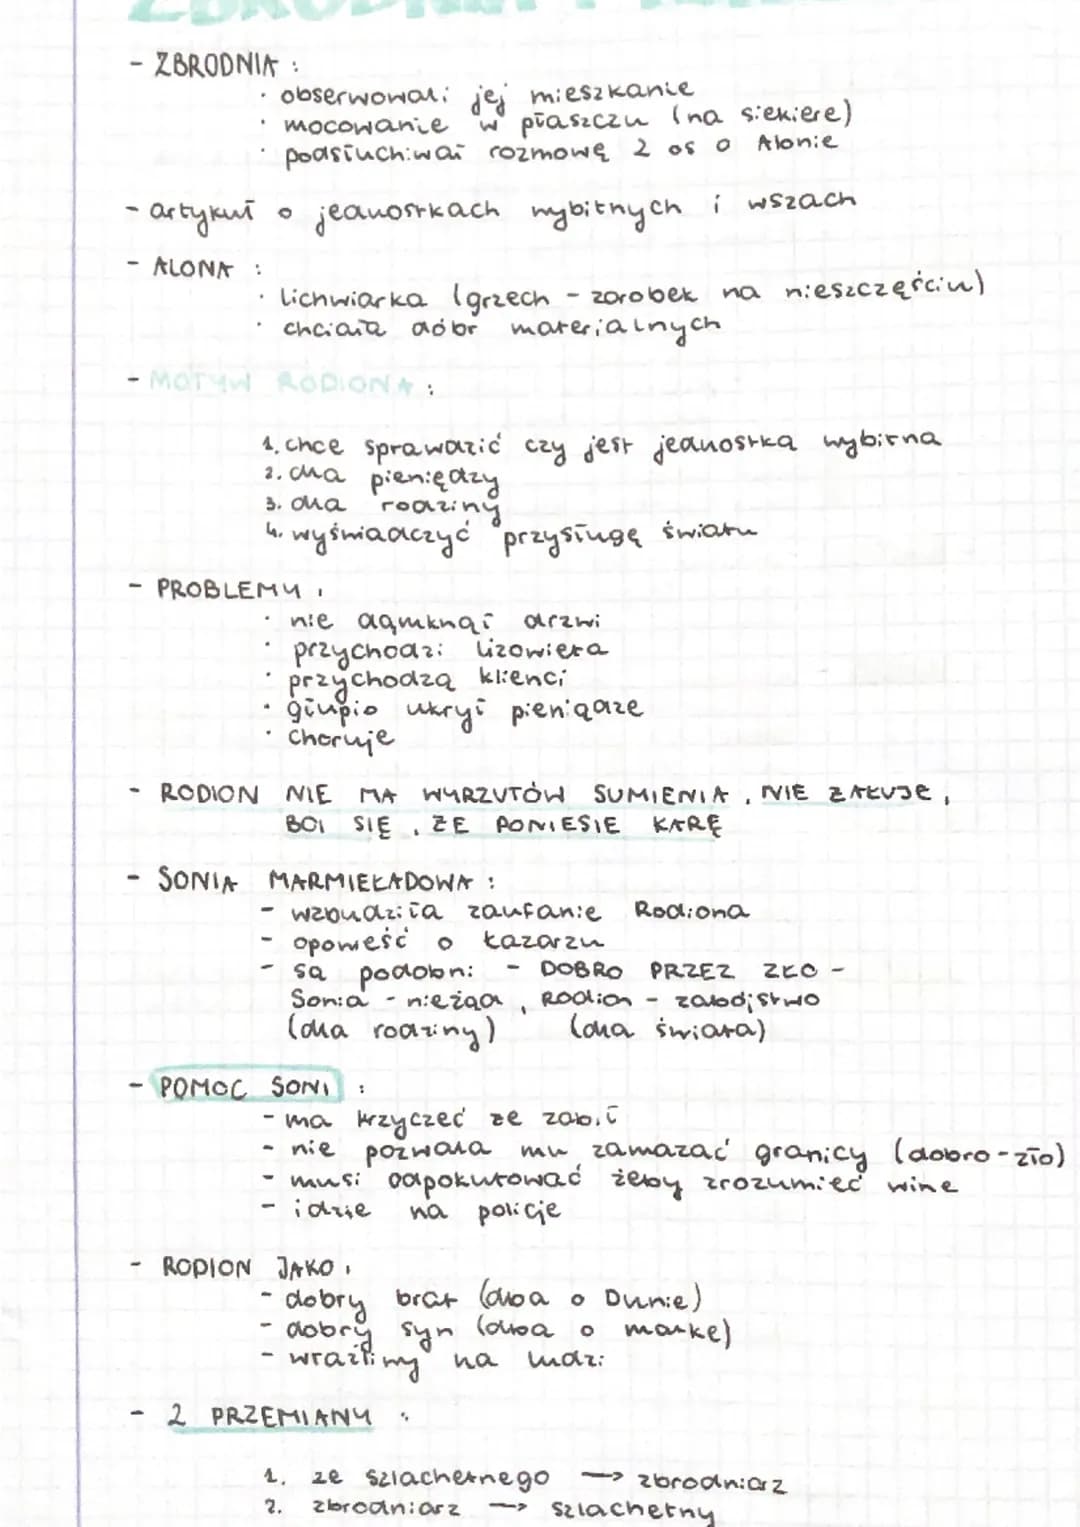 - ZBRODNIA :
· obserwował jej mieszkanie
· mocowanie w płaszczu (na siekiere)
· podsłuchiwał rozmowę 2 os o Alonie
- artykuł o jednostkach wybitnych i wszach
- ALONA :
· lichwiarka (grzech - zarobek na nieszczęściu)
· chciała dóbr materialnych
- MOTYW RODIONA :
1. chce sprawdzić czy jest jednostka wybitna
2. dla pieniędzy
3. dla rodziny
4. wyświadczyć przysługę światu
- PROBLEMY :
· nie domknął drzwi
· przychodzi Lizowieta
· przychodzą klienci
· głupio ukrył pieniądze
· choruje
- RODION NIE MA WYRZUTÓW SUMIENIA, NIE ŻAŁUJE,
BOI SIĘ, ŻE PONIESIE KARĘ
- SONIA MARMIEŁADOWA :
- wzbudziła zaufanie Rodiona
- opowieść o Łazarzu
- są podobni - DOBRO PRZEZ ZŁO -
Sonia - nierząd, Rodion - zabójstwo
(dla rodziny) (dla świata)
- POMOC SONI :
- ma krzyczeć ze zabił
- nie pozwala mu zamazać granicy (dobro-zło)
- musi odpokutować żeby zrozumieć wine
- idzie na policje
- RODION JAKO :
- dobry brat (dba o Dunie)
- dobry syn (dba o matke)
- wrażliwy na ludzi
- 2 PRZEMIANY :
1. ze szlachetnego → zbrodniarz
2. zbrodniarz → szlachetny